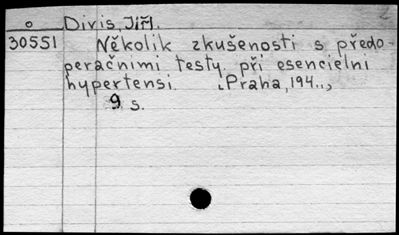 o Divis, Jiří.
30551 Několik zkušeností s předo-
peračními testy při esencielní
hypertensi. [Praha, 194..,]
9 s.